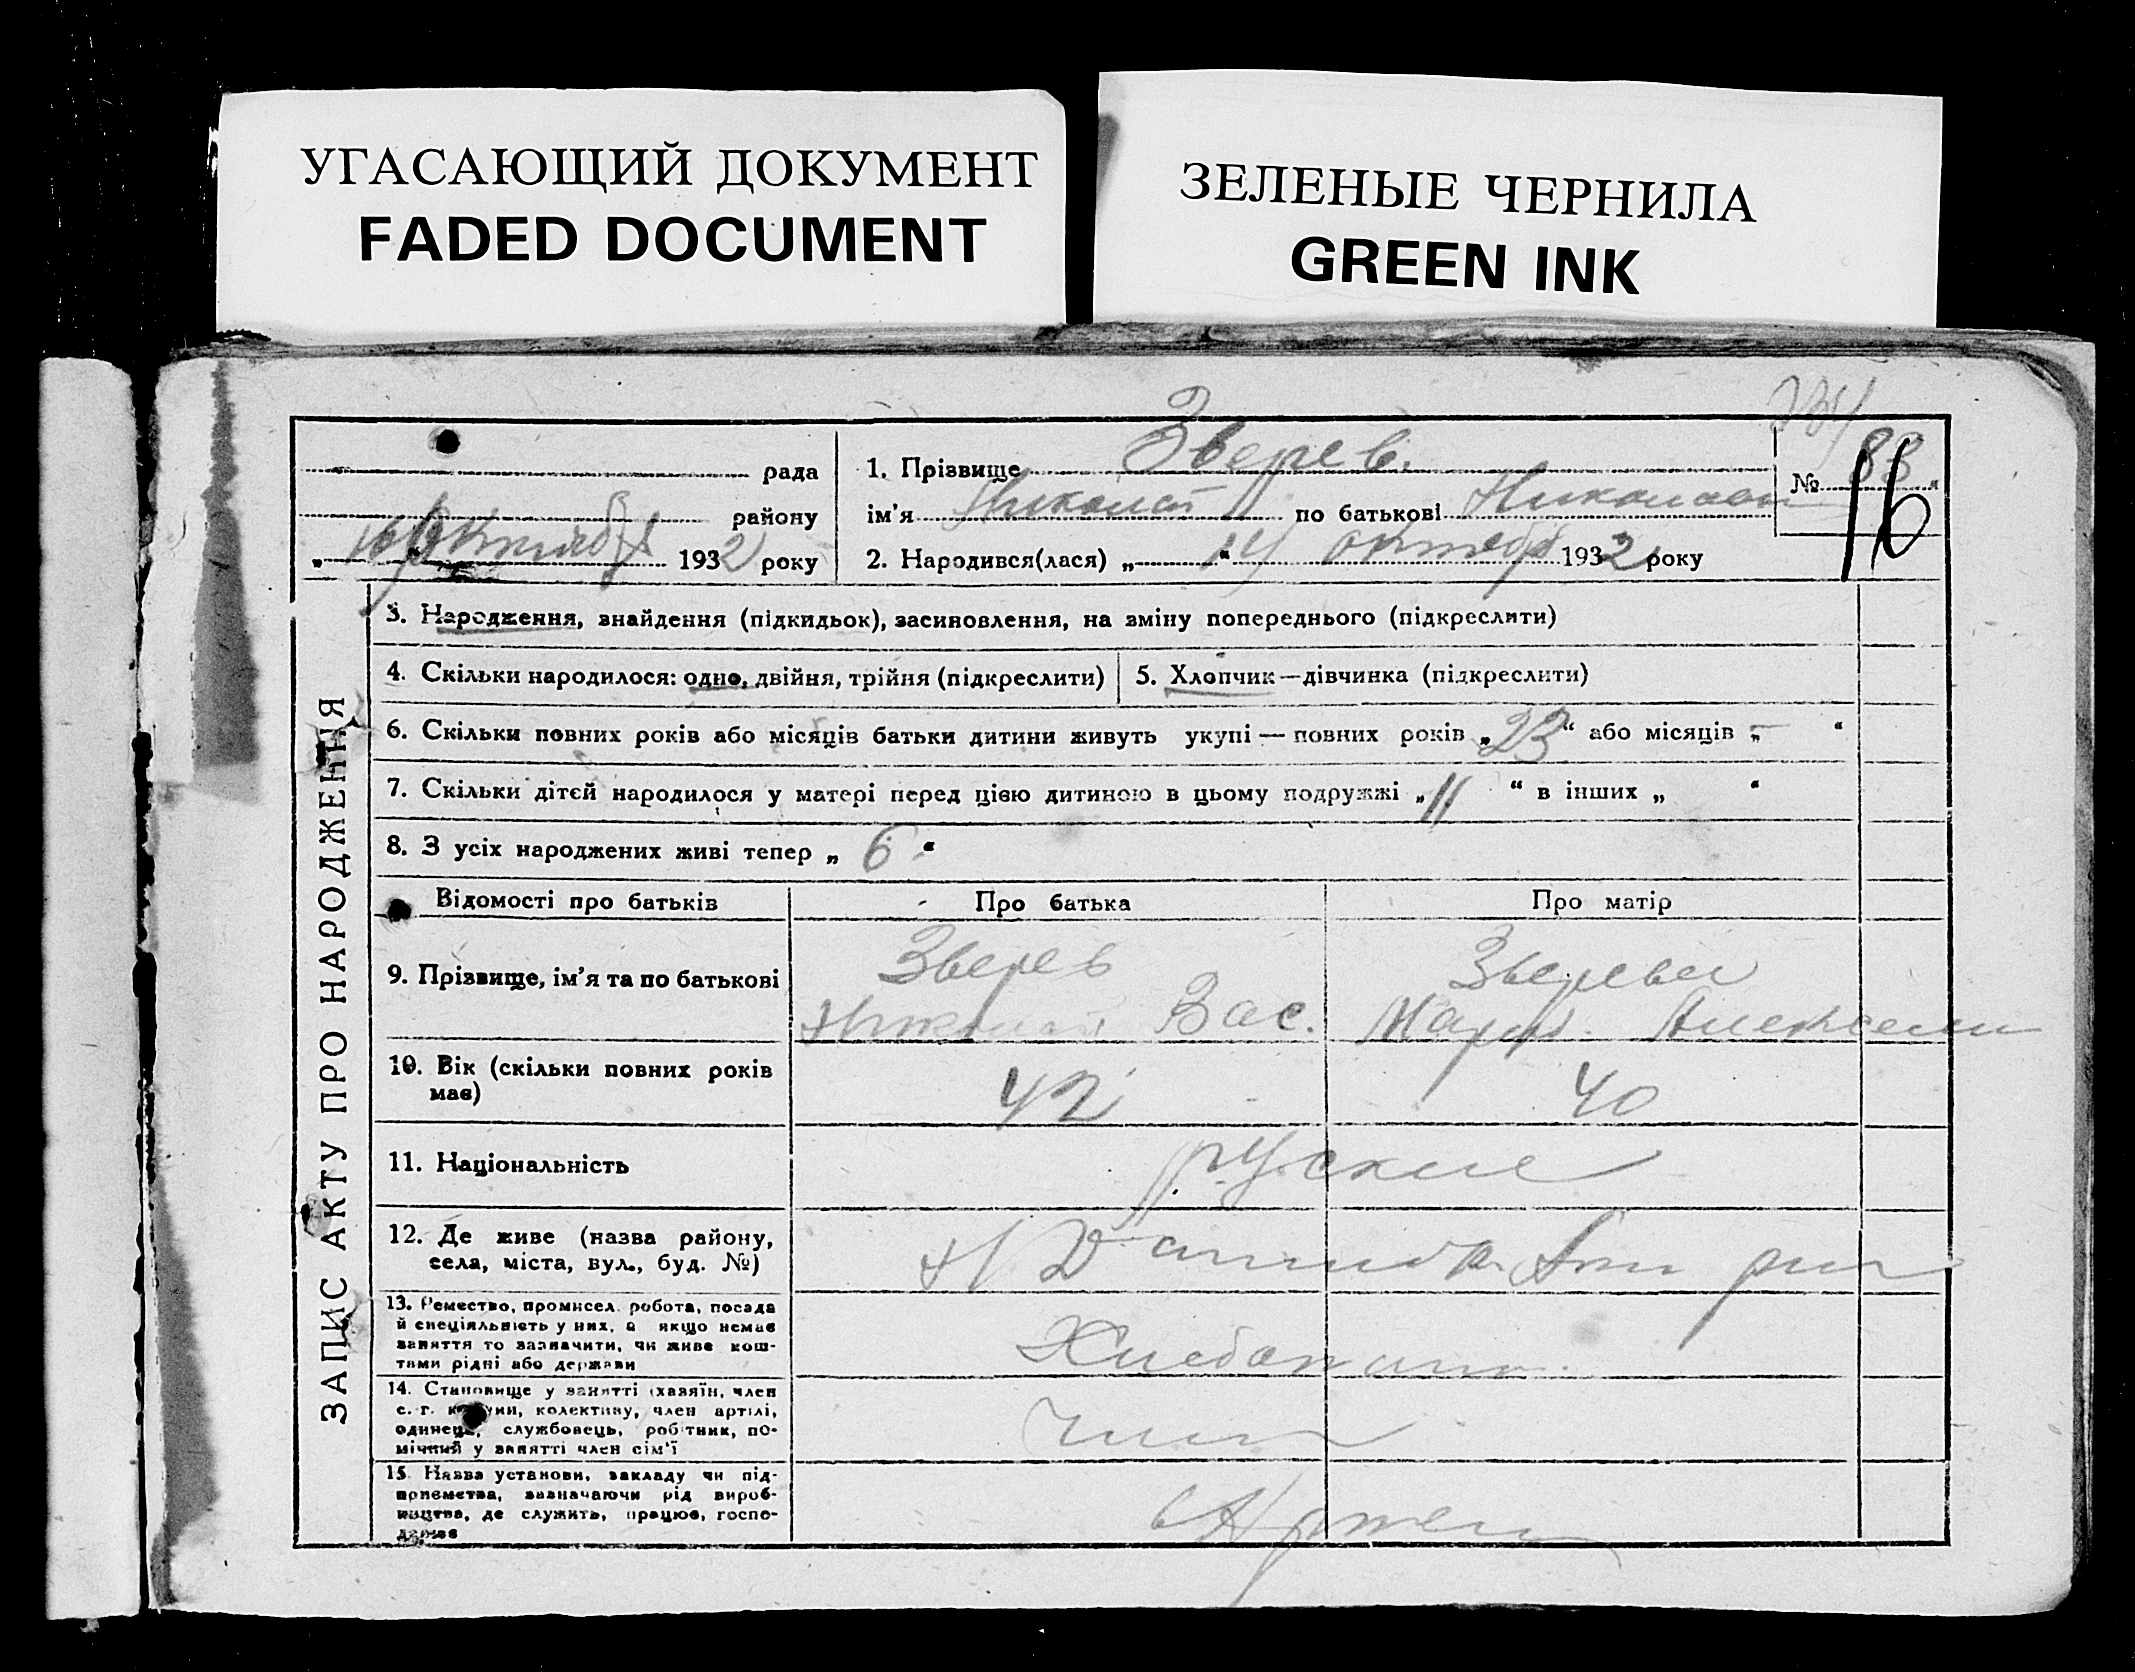 УГАСАЮЩИЙ ДОКУМЕНТ
FADED DOCUMENT
ЗЕЛЕНЫЕ ЧЕРНИЛА
GREEN INK
рада
району
„16“ Октября 1932 року
1. Прізвище Зверев.
ім'я Николай по батькові Николаев
2. Народився(лася) „14“ октября 1932 року
№ 83
116
ЗАПИС АКТУ ПРО НАРОДЖЕННЯ
3. Народження, знайдення (підкидьок), засиновлення, на зміну попереднього (підкреслити)
4. Скільки народилося: одно, двійня, трійня (підкреслити)
5. Хлопчик—дівчинка (підкреслити)
6. Скільки повних років або місяців батьки дитини живуть укупі — повних років „23“ або місяців „–“
7. Скільки дітей народилося у матері перед цією дитиною в цьому подружжі „11“ в інших „ “
8. З усіх народжених живі тепер „6“
Відомості про батьків Про батька Про матір
9. Прізвище, ім'я та по батькові
Зверев
Николай Вас.
Зверева
Мария Алексеев
10. Вік (скільки повних років
має)
42 40
11. Національність
русские
12. Де живе (назва району,
села, міста, вул., буд. №)
13. Ремество, промисел, робота, посада
й спеціяльність у них, а якщо немає
заняття то зазначити, чи живе кош-
тами рідні або держави
14. Становище у занятті (хазяїн, член
с.-г. комуни, колективу, член артілі,
одинець, службовець, робітник, по-
мічний у занятті член сім'ї
Член
15. Назва установи, закладу чи під-
приємства, зазначаючи рід вироб-
ництва, де служить, працює, госпо-
дарює
Артели